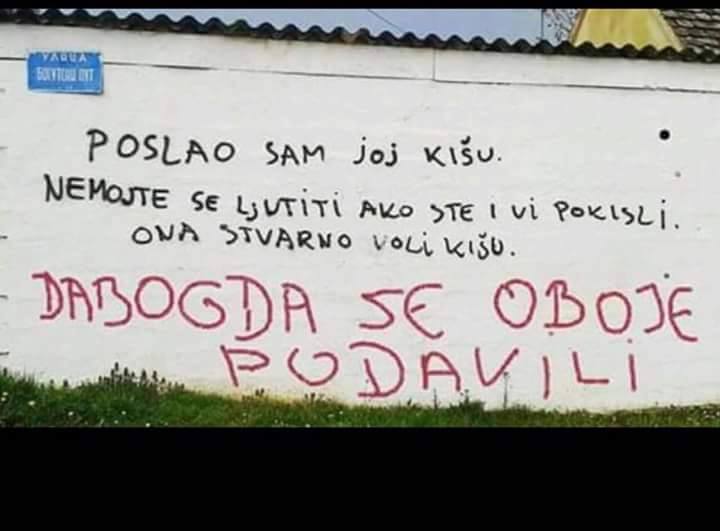 УЛИЦА
БОГУТОВ ПУТ
POSLAO SAM JOJ KIŠU.
NEMOJTE SE LJUTITI AKO STE I VI POKISLI.
ONA STVARNO VOLI KIŠU.
DABOGDA SE OBOJE
PODAVILI